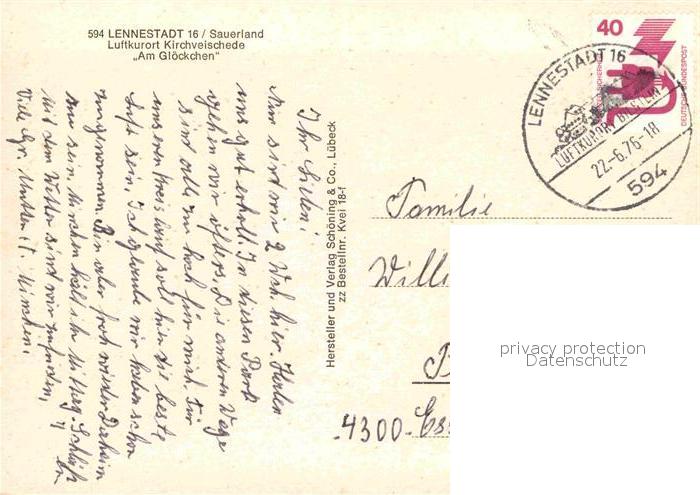 594 LENNESTADT 16 / Sauerland
Luftkurort Kirchveischede
„Am Glöckchen"
40
DEUTSCHE BUNDESPOST
LENNESTADT 16
LUFTKURORT BILSTEIN
22.-6.76-18
594
Hersteller und Verlag Schöning & Co., Lübeck
zz Bestellnr. Kvei 18-f
Ihr Lieben!
Nun sind wir 2 Woch. hier. Haben
uns gut erholt. In diesen Park
gehen wir öfters. Die anderen Wege
sind alle zu hoch für mich. Für
unseren Kreislauf soll hier die beste
Luft sein. Ich glaube wir haben schon
zugenommen. Bin aber froh wieder Daheim
zu sein.
Mit dem Wetter sind wir zufrieden,
Viele Gr. Mutter
Familie
Willi
4300-Ess
privacy protection
Datenschutz